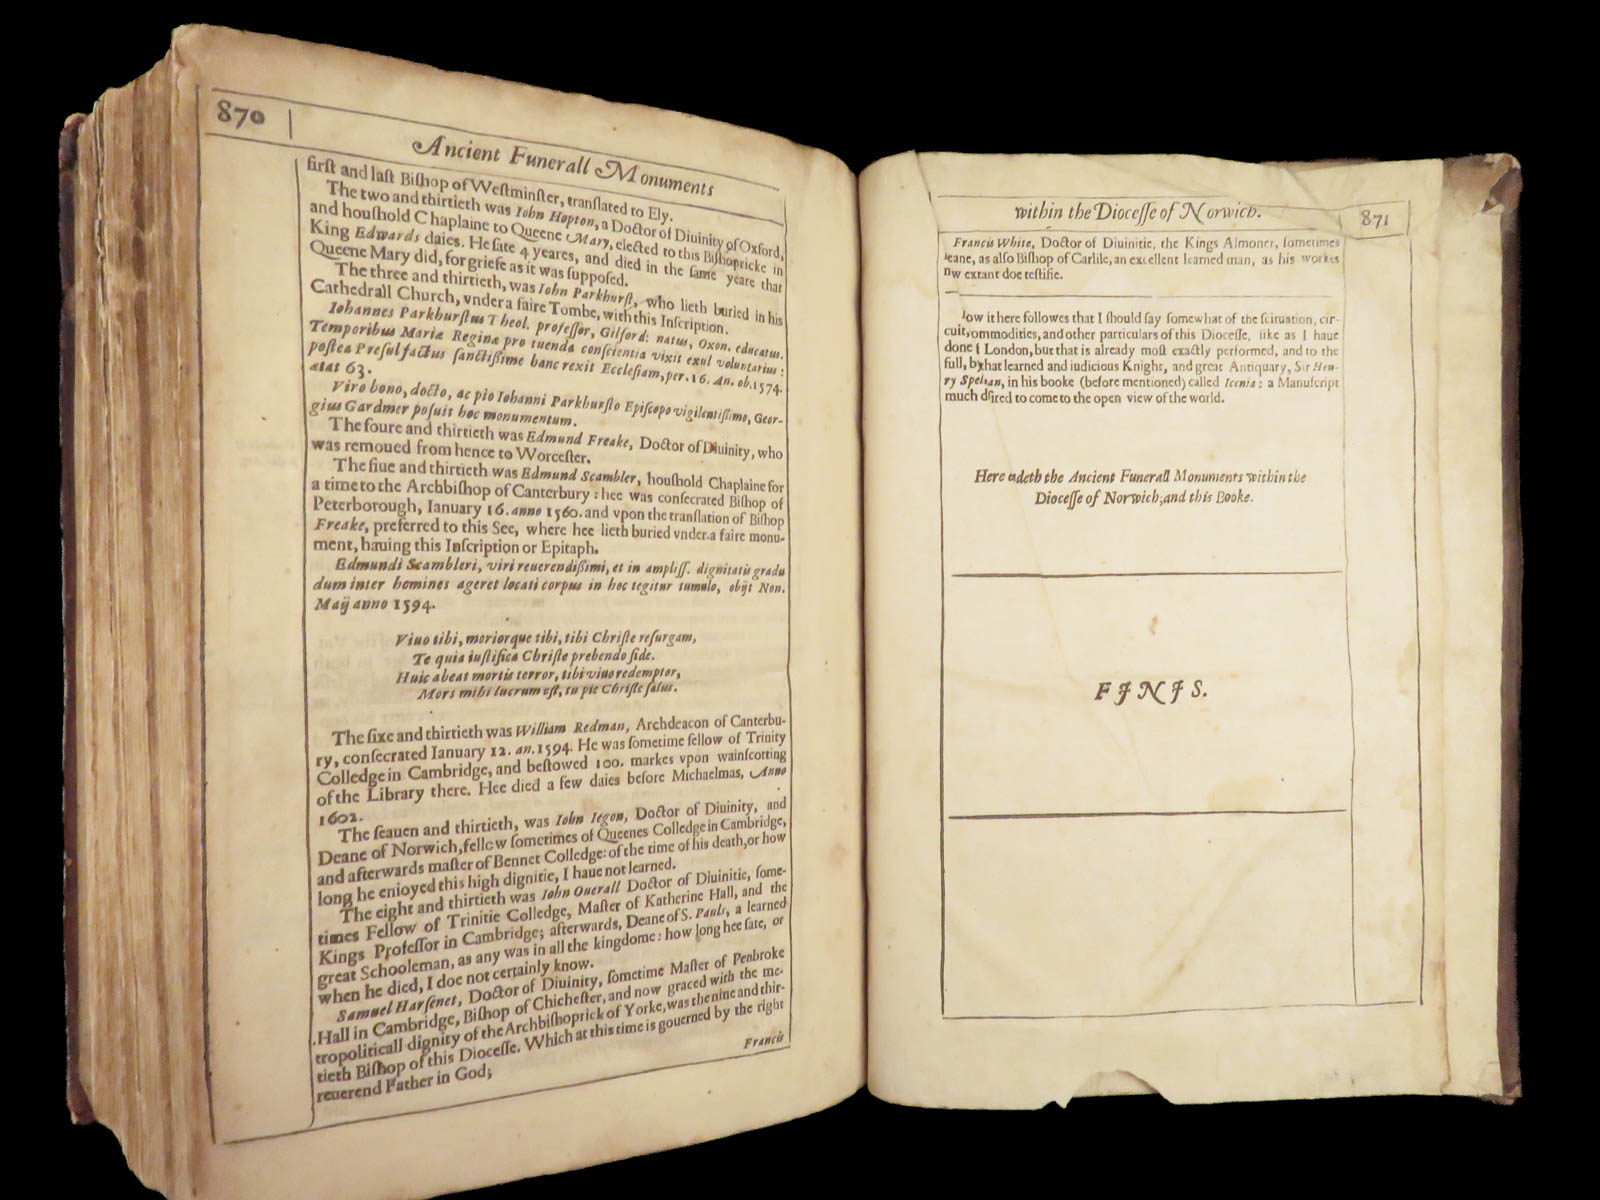 870
Ancient Funerall Monuments
first and last Bishop of Westminster, translated to Ely.
The two and thirtieth was Iohn Hopton, a Doctor of Diuinity of Oxford,
and houshold Chaplaine to Queene Mary, elected to this Bishopricke in
King Edwards daies. He sate 4 yeares, and died in the same yeare that
Queene Mary did, for griefe as it was supposed.
The three and thirtieth, was Iohn Parkhurst, who lieth buried in his
Cathedrall Church, vnder a faire Tombe, with this Inscription.
Iohannes Parkhurstus Theol. professor, Gilford: natus, Oxon. educatus.
Temporibus Mariæ Reginæ pro tuenda conscientia vixit exul voluntarius:
postea Presul factus sanctissime hanc rexit Ecclesiam, per. 16. An. ob. 1574.
ætat 63.
Viro bono, docto, ac pio Iohanni Parkhursto Episcopo vigilentissimo, Geor-
gius Gardmer posuit hoc monumentum.
The foure and thirtieth was Edmund Freake, Doctor of Diuinity, who
was remoued from hence to Worcester.
The fiue and thirtieth was Edmund Scambler, houshold Chaplaine for
a time to the Archbishop of Canterbury: hee was consecrated Bishop of
Peterborough, Ianuary 16. anno 1560. and vpon the translation of Bishop
Freake, preferred to this See, where hee lieth buried vnder a faire monu-
ment, hauing this Inscription or Epitaph.
Edmundi Scambleri, viri reuerendissimi, et in ampliss. dignitatis gradu
dum inter homines ageret locati corpus in hoc tegitur tumulo, obijt Non.
Maij anno 1594.
Viuo tibi, moriorque tibi, tibi Christe resurgam,
Te quia iustifica Christe prebendo fide.
Huic abeat mortis terror, tibi viuo redemptor,
Mors mihi lucrum est, tu pie Christe salus.
The sixe and thirtieth was William Redman, Archdeacon of Canterbu-
ry, consecrated Ianuary 12. an. 1594. He was sometime fellow of Trinity
Colledge in Cambridge, and bestowed 100. markes vpon wainscotting
of the Library there. Hee died a few daies before Michaelmas, Anno
1602.
The seauen and thirtieth, was Iohn Iegon, Doctor of Diuinity, and
Deane of Norwich, fellow sometimes of Queenes Colledge in Cambridge,
and afterwards master of Bennet Colledge: of the time of his death, or how
long he enioyed this high dignitie, I haue not learned.
The eight and thirtieth was Iohn Ouerall Doctor of Diuinitie, some-
times Fellow of Trinitie Colledge, Master of Katherine Hall, and the
Kings Professor in Cambridge; afterwards, Deane of S. Pauls, a learned
great Schooleman, as any was in all the kingdome: how long hee sate, or
when he died, I doe not certainly know.
Samuel Harsenet, Doctor of Diuinity, sometime Master of Penbroke
Hall in Cambridge, Bishop of Chichester, and now graced with the me-
tropoliticall dignity of the Archbishoprick of Yorke, was the nine and thir-
tieth Bishop of this Diocesse. Which at this time is gouerned by the right
reuerend Father in God;
Francis
within the Diocesse of Norwich.
871
Francis White, Doctor of Diuinitie, the Kings Almoner, sometimes
eane, as also Bishop of Carlile, an excellent learned man, as his workes
nw extant doe testifie.
ow it here followes that I should say somewhat of the scituation, cir-
cuit, ommodities, and other particulars of this Diocesse, like as I haue
done f London, but that is already most exactly performed, and to the
full, by hat learned and iudicious Knight, and great Antiquary, Sir Hen-
ry Spelman, in his booke (before mentioned) called Icenia: a Manuscript
much dsired to come to the open view of the world.
Here edeth the Ancient Funerall Monuments within the
Diocesse of Norwich, and this Booke.
FINIS.